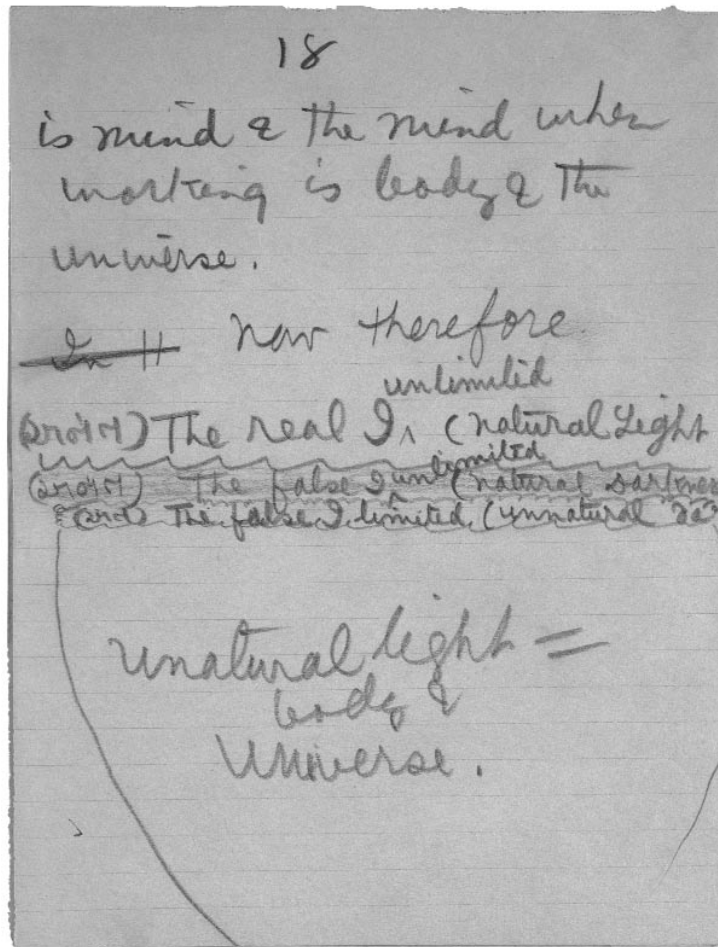 18
is mind & the mind when
working is body & the
universe.
In It now therefore
unlimited
The real I ^ (natural Light
unlimited
The false I ^ (natural darkness
The false I limited (unnatural
unatural light =
body &
Universe.